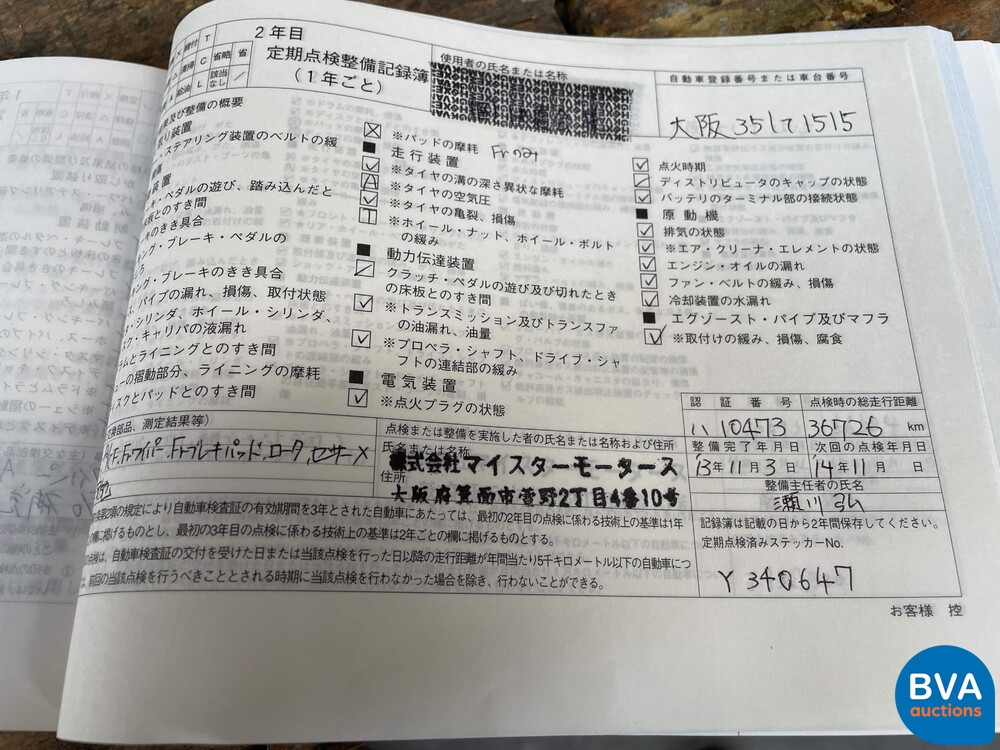 2年目
定期点検整備記録簿
(1年ごと)
使用者の氏名または名称
自動車登録番号または車台番号
T
省略
省
C
L
該当なし
及び整備の概要
ステアリング装置のベルトの緩
ペダルの遊び、踏み込んだと
床板とのすき間
キのきき具合
キング・ブレーキ・ペダルの
キング・ブレーキのきき具合
パイプの漏れ、損傷、取付状態
シリンダ、ホイール・シリンダ、
ク・キャリパの液漏れ
ラムとライニングとのすき間
ューの摺動部分、ライニングの摩耗
ィスクとパッドとのすき間
※パッドの摩耗
■ 走行装置
※タイヤの溝の深さ異状な摩耗
※タイヤの空気圧
※タイヤの亀裂、損傷
※ホイール・ナット、ホイール・ボルト
の緩み
■ 動力伝達装置
クラッチ・ペダルの遊び及び切れたとき
の床板とのすき間
※トランスミッション及びトランスファ
の油漏れ、油量
※プロペラ・シャフト、ドライブ・シャ
フトの連結部の緩み
■ 電気装置
※点火プラグの状態
大阪 351 1515
点火時期
ディストリビュータのキャップの状態
バッテリのターミナル部の接続状態
■ 原動機
排気の状態
※エア・クリーナ・エレメントの状態
エンジン・オイルの漏れ
ファン・ベルトの緩み、損傷
冷却装置の水漏れ
■ エグゾースト・パイプ及びマフラ
※取付けの緩み、損傷、腐食
交換部品、測定結果等)
Frワイパー、Frブレーキパッド、ロータ、センサー
点検または整備を実施した者の氏名または名称および住所
氏名または名称
株式会社マイスターモータース
住所
大阪府箕面市菅野2丁目4番10号
認証番号
点検時の総走行距離
10473
36726 km
整備完了年月日
次回の点検年月日
13年11月3日
14年11月 日
整備主任者の氏名
瀬川
条第2項の規定により自動車検査証の有効期間を3年とされた自動車にあたっては、最初の2年目の点検に係わる技術上の基準は1年
の欄に掲げるものとし、最初の3年目の点検に係わる技術上の基準は2年ごとの欄に掲げるものとする。
点検は、自動車検査証の交付を受けた日または当該点検を行った日以降の走行距離が年間当り5千キロメートル以下の自動車につ
前回の当該点検を行うべきこととされる時期に当該点検を行わなかった場合を除き、行わないことができる。
記録簿は記載の日から2年間保存してください。
定期点検済みステッカーNo.
Y 340647
お客様 控
BVA
auctions